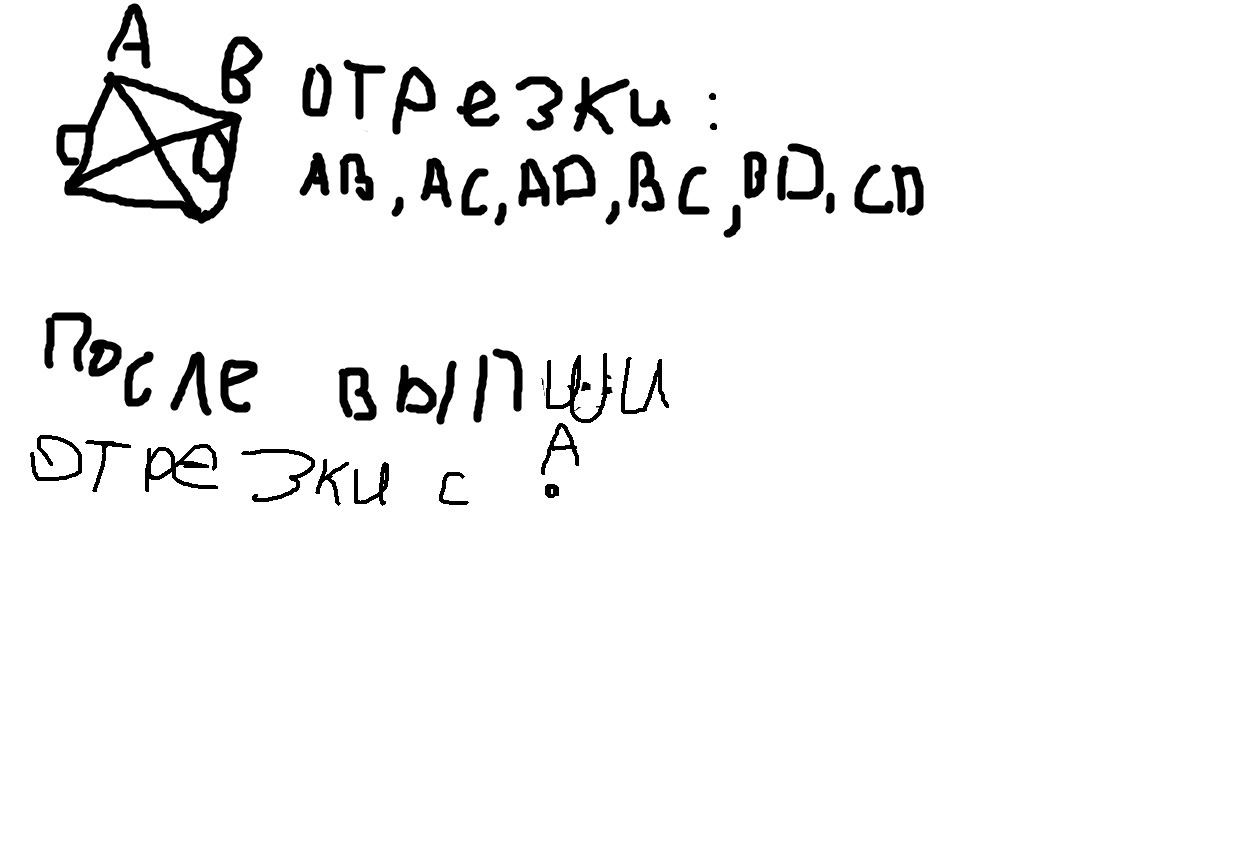 A
B
отрезки:
C
D
AB, AC, AD, BC, BD, CD
После выпиши
отрезки с
A